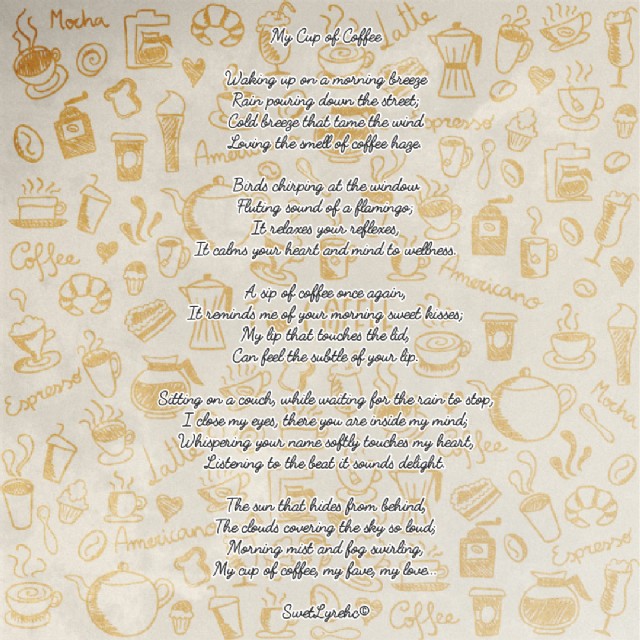 Mocha
Latte
My Cup of Coffee
Waking up on a morning breeze
Rain pouring down the street;
Cold breeze that tame the wind
Loving the smell of coffee haze.
Espresso
Americano
Birds chirping at the window
Fluting sound of a flamingo;
It relaxes your reflexes,
It calms your heart and mind to wellness.
Coffee
Americano
A sip of coffee once again,
It reminds me of your morning sweet kisses;
My lip that touches the lid,
Can feel the subtle of your lip.
Espresso
Mocha
Sitting on a couch, while waiting for the rain to stop,
I close my eyes, there you are inside my mind;
Whispering your name softly touches my heart,
Listening to the beat it sounds delight.
Latte
Coffee
The sun that hides from behind,
The clouds covering the sky so loud;
Morning mist and fog swirling,
My cup of coffee, my fave, my love...
Americano
Espresso
SwetLyrehc©
Coffee